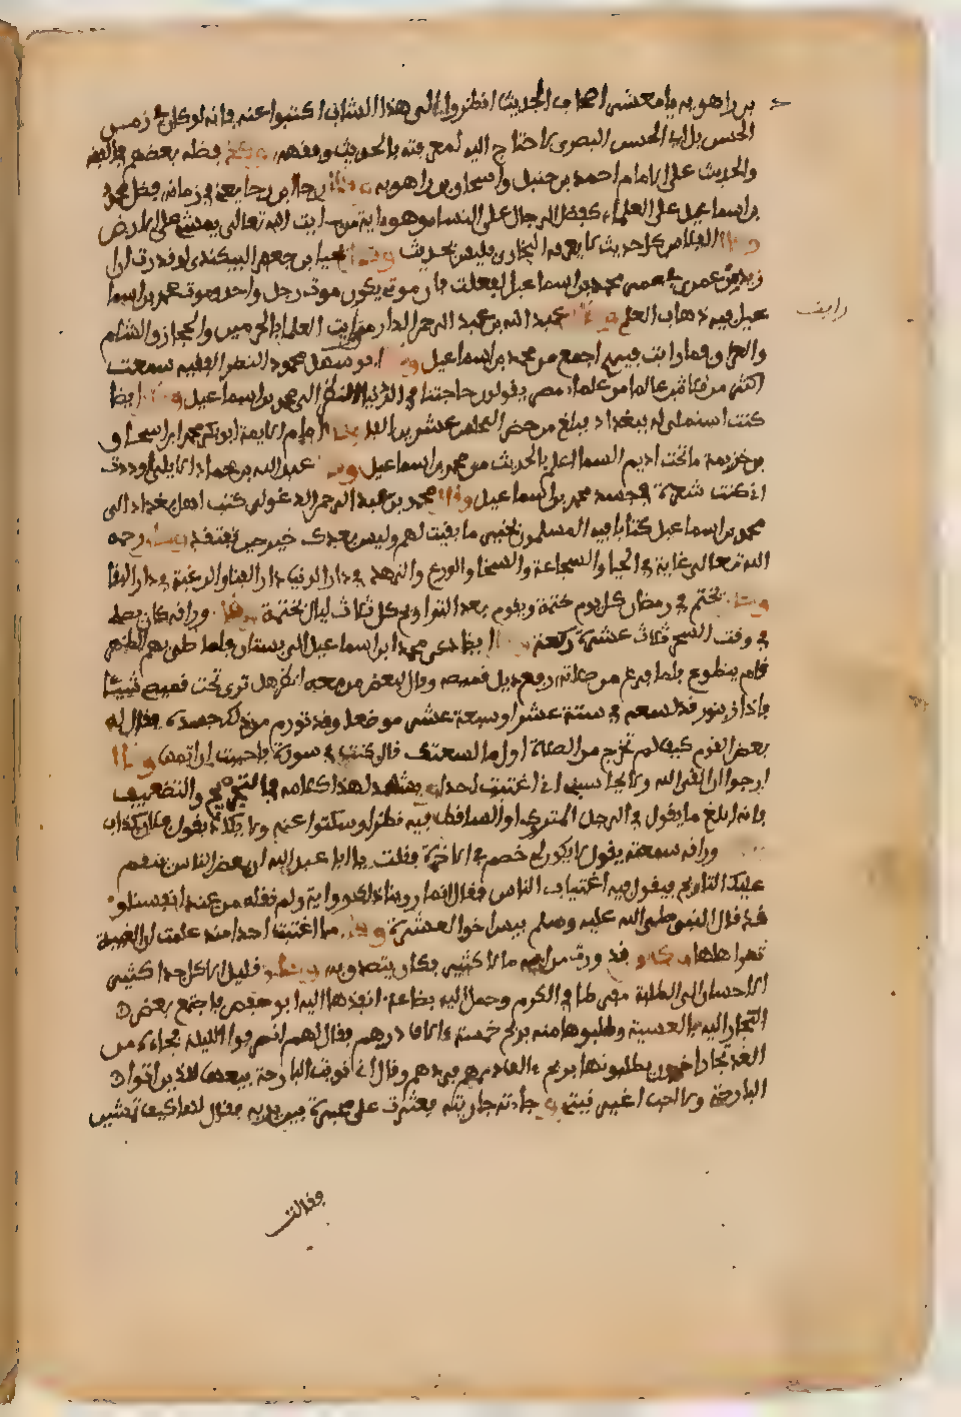 بن راهويه يا معشر اصحاب الحديث انظروا الى هذا الشاب اكتبوا عنه فانه لو كان في زمن
الحسن بن ابي الحسن البصري لاحتاج اليه لمعرفته بالحديث وفقهه وقد فضله بعضهم في الفقه
والحديث على الامام احمد بن حنبل واسحاق بن راهويه وقال رجا بن رجا يعني في زمانه فضل محمد
بن اسماعيل على العلماء كفضل الرجال على النساء وهو ءاية من ءايات الله تعالى يمشي على الارض
وقال الفلاس كل حديث لا يعرفه البخاري فليس بحديث وقال يحيا بن جعفر البيكندي لو قدرت ان
ازيد من عمري في عمر محمد بن اسماعيل لفعلت فان موتي يكون موت رجل واحد وموت محمد بن اسما
عيل فيه ذهاب العلم وقال عبد الله بن عبد الرحمن الدارمي رايت العلما بالحرمين والحجاز والشام
رايت
والعراق فما رايت فيهم اجمع من محمد بن اسماعيل وقال ابو سهل محمود النضر الفقيه سمعت
اكثر من ثلاثين عالما من علماء مصر يقولون حاجتنا في الدنيا النظر الى محمد بن اسماعيل وقال ايضا
كنت استملي له ببغداد فبلغ من حضر المجلس عشرين الفا وقال امام الايمة ابو بكر محمد بن اسحاق
بن خزيمة ما تحت اديم السما اعلم بالحديث من محمد بن اسماعيل وقال عبد الله بن حماد الايلي لوددت
اني كنت شعرة في جسد محمد بن اسماعيل وقال محمد بن عبد الرحمن الدغولي كتب اهل بغداد الى
محمد بن اسماعيل كتابا فيه المسلمون بخير ما بقيت لهم وليس بعدك خير حين تفتقد وكان رحمه
الله تعالى غاية في الحيا والشجاعة والسخا والورع والزهد في دار الدنيا دار الفنا والرغبة في دار البقا
وكان يختم في رمضان كل يوم ختمة ويقوم بعد التراويح كل ثلاث ليال بختمة وقال وراقه كان يصلي
في وقت السحر ثلاث عشرة ركعة وقال ايضا دعي محمد ابن اسماعيل الى بستان فلما صلى بهم الظهر
قام يتطوع فلما فرغ من صلاته رفع ذيل قميصه وقال لبعض من معه انظر هل ترى تحت قميصي شيئا
فاذا زنبور قد لسعه في ستة عشر او سبعة عشر موضعا وقد تورم من ذلك جسده فقال له
بعض القوم كيف لم تخرج من الصلاة اول ما لسعتك قال كنت في سورة فاحببت ان اتمها وقال
ارجوا ان القى الله ولا يحاسبني اني اغتبت احدا يشهد لهذا كلامه في التجريح والتضعيف
فانه ابلغ ما يقول في الرجل المتروك او الساقط فيه نظر او سكتوا عنه ولا يكاد يقول فلان كذاب
وراقه سمعته يقول لا يكون لي خصم في الاخرة فقلت يا ابا عبد الله ان بعض الناس ينقم
عليك التاريخ فيقول فيه اغتياب الناس فقال انما روينا ذلك رواية ولم نقله من عند انفسنا و
قد قال النبي صلى الله عليه وسلم بيس اخو العشيرة وقال ما اغتبت احدا منذ علمت ان الغيبة
تضر اهلها وكان قد ورث من ابيه مالا كثيرا فكان يتصدق به وكان قليل الاكل جدا كثير
الاحسان الى الطلبة مفرطا في الكرم وحمل اليه بضاعة انفذها اليه ابو حفص فاجتمع بعض
التجار اليه بالعشية وطلبوها منه بربح خمسة ءالاف درهم فقال لهم انصرفوا الليلة فجاءه من
الغد تجار اخرون يطلبونها بربح عشرة ءالاف درهم فردهم وقال اني نويت البارحة بيعها للذين اتوا
البارحة ولا احب اغير نيتي وجاءته جاريته فعثرت على محبرة بين يديه فقال لها كيف تمشين
فقالت